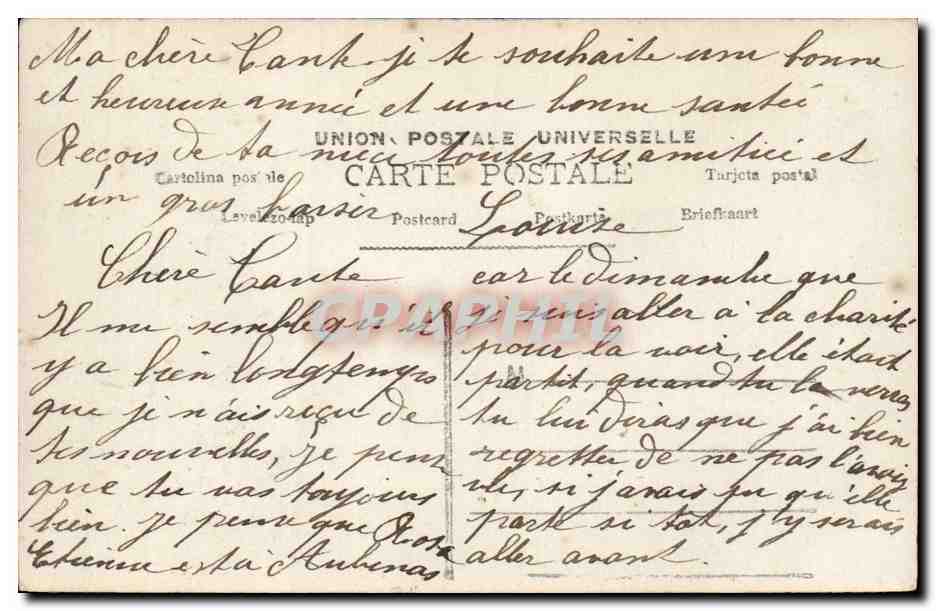 Ma chère Tante je te souhaite une bonne
et heureuse année et une bonne santée
UNION POSTALE UNIVERSELLE
Reçois de ta niece toutes ses amitiée et
Cartolina postale CARTE POSTALE Tarjeta postal
un gros baiser Louise
Levelezo-lap Postcard Postkarte Briefkaart
Chère Tante
Il me semble qu'il
y a bien longtemps
que je n'ais reçu de
tes nouvelles, je pense
que tu vas toujours
bien. je pense que Rosa
Etienne est à Aubenas
car le dimanche que
je suis aller à la charité
pour la voir, elle était
partit, quand tu la verras
tu lui diras que j'ai bien
regretter de ne pas l'avoir
vue, si j'avais su qu'elle
parte si tôt, j'y serais
aller avant.
M
CPAPHIL